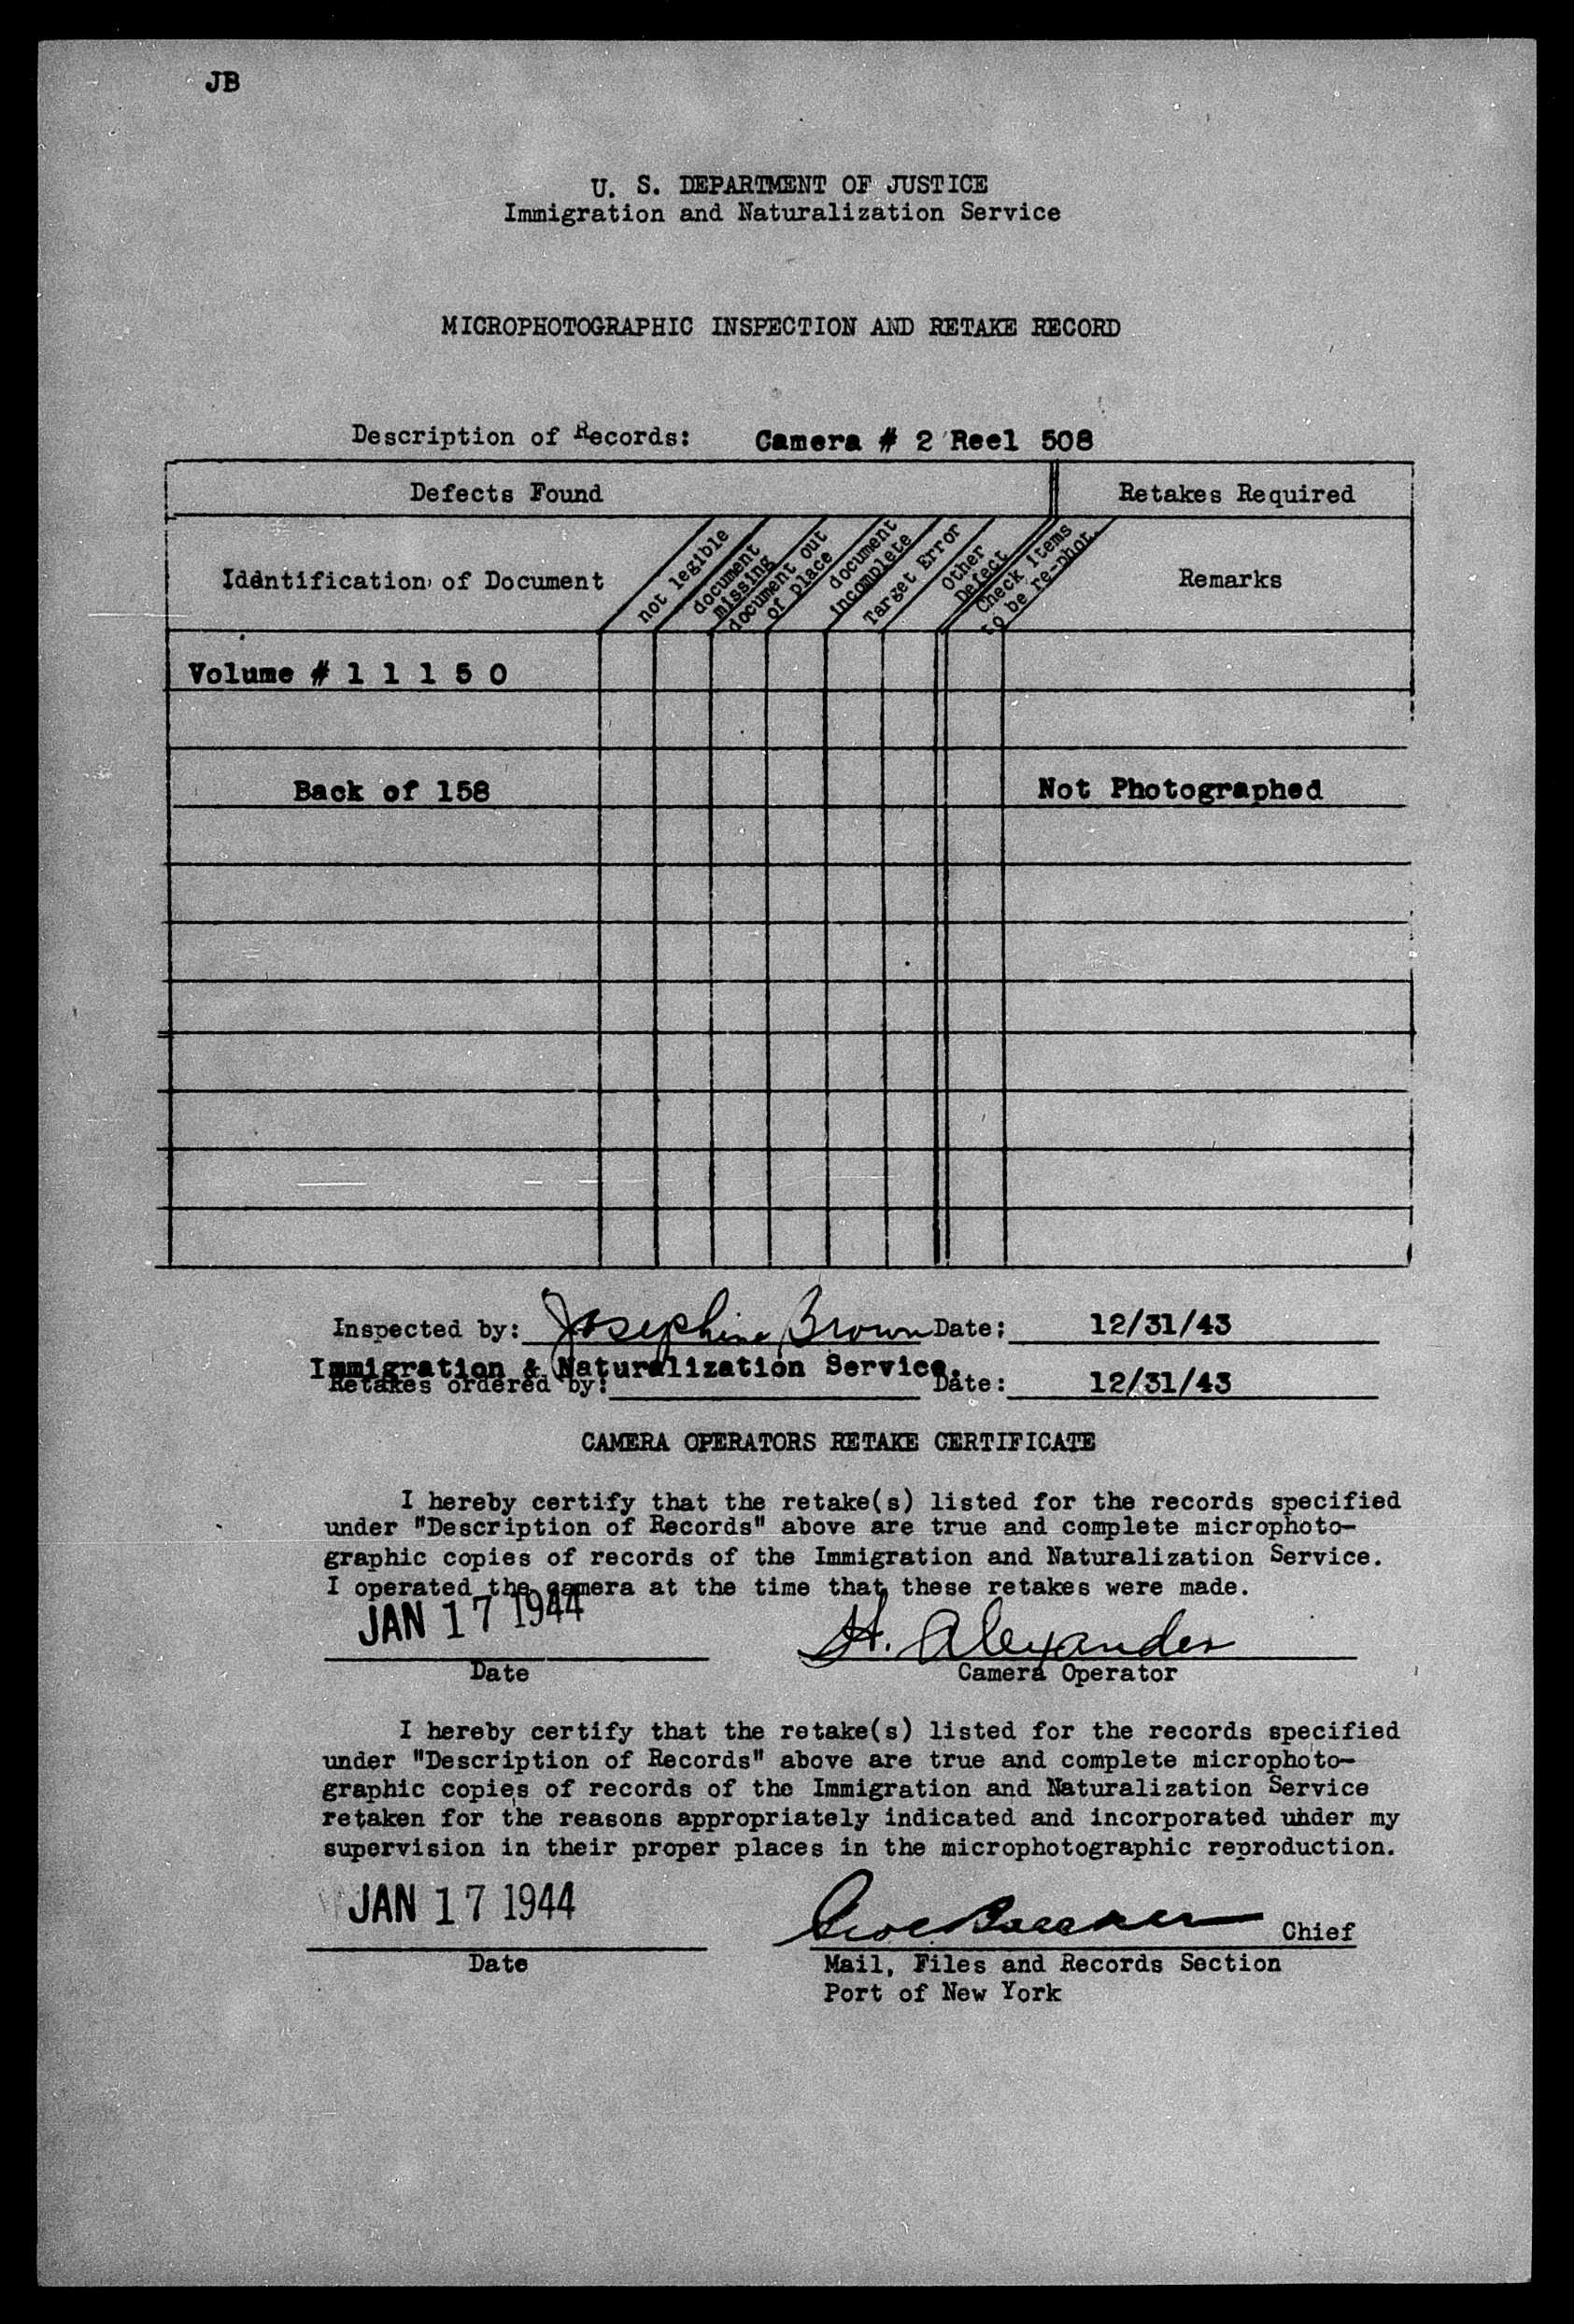 JB
U. S. DEPARTMENT OF JUSTICE
Immigration and Naturalization Service
MICROPHOTOGRAPHIC INSPECTION AND RETAKE RECORD
Description of Records: Camera # 2 Reel 508
Defects Found Retakes Required
Identification of Document
not legible
document missing
document out of place
document incomplete
Target Error
Other Defect
Check Items to be re-phot.
Remarks
Volume # 1 1 1 5 0
Back of 158 Not Photographed
Inspected by: Josephine Brown Date: 12/31/43
Immigration & Naturalization Service.
Retakes ordered by: Date: 12/31/43
CAMERA OPERATORS RETAKE CERTIFICATE
I hereby certify that the retake(s) listed for the records specified
under "Description of Records" above are true and complete microphoto-
graphic copies of records of the Immigration and Naturalization Service.
I operated the camera at the time that these retakes were made.
JAN 17 1944 H. Alexander
Date Camera Operator
I hereby certify that the retake(s) listed for the records specified
under "Description of Records" above are true and complete microphoto-
graphic copies of records of the Immigration and Naturalization Service
retaken for the reasons appropriately indicated and incorporated under my
supervision in their proper places in the microphotographic reproduction.
JAN 17 1944 Chief
Date Mail, Files and Records Section
Port of New York